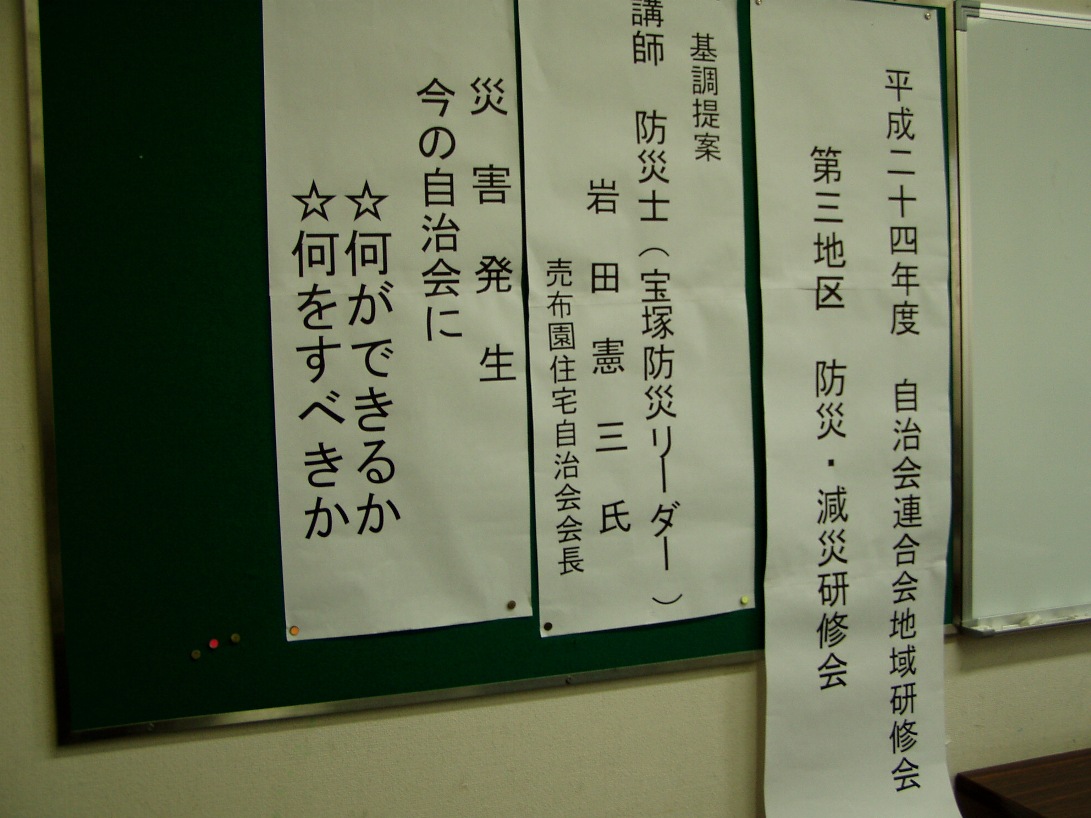 平成二十四年度 自治会連合会地域研修会
第三地区 防災・減災研修会
基調提案
講師 防災士（宝塚防災リーダー）
岩田憲三氏
売布園住宅自治会会長
災害発生
今の自治会に
☆何ができるか
☆何をすべきか